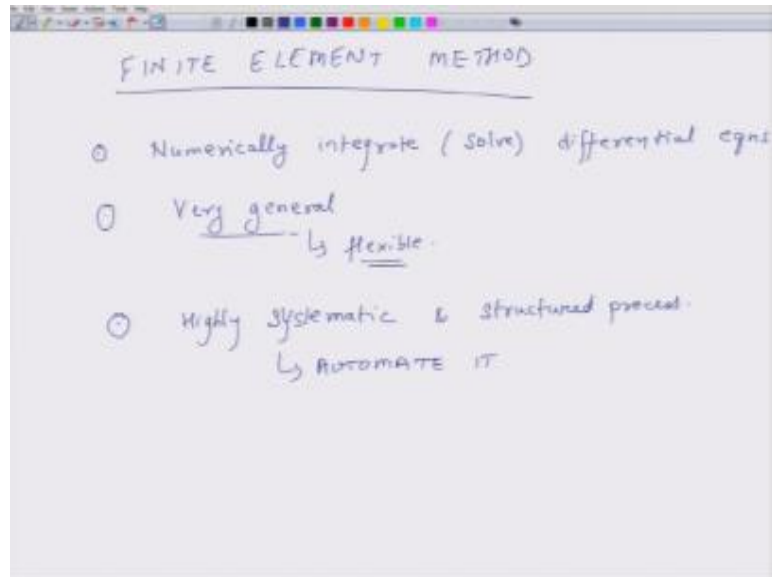 FINITE ELEMENT METHOD
Numerically integrate (solve) differential eqns
Very general
↳ flexible.
Highly systematic & structured process.
↳ AUTOMATE IT